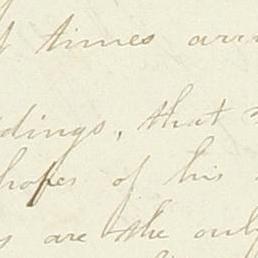 times
dings, that
hopes of his
are the only